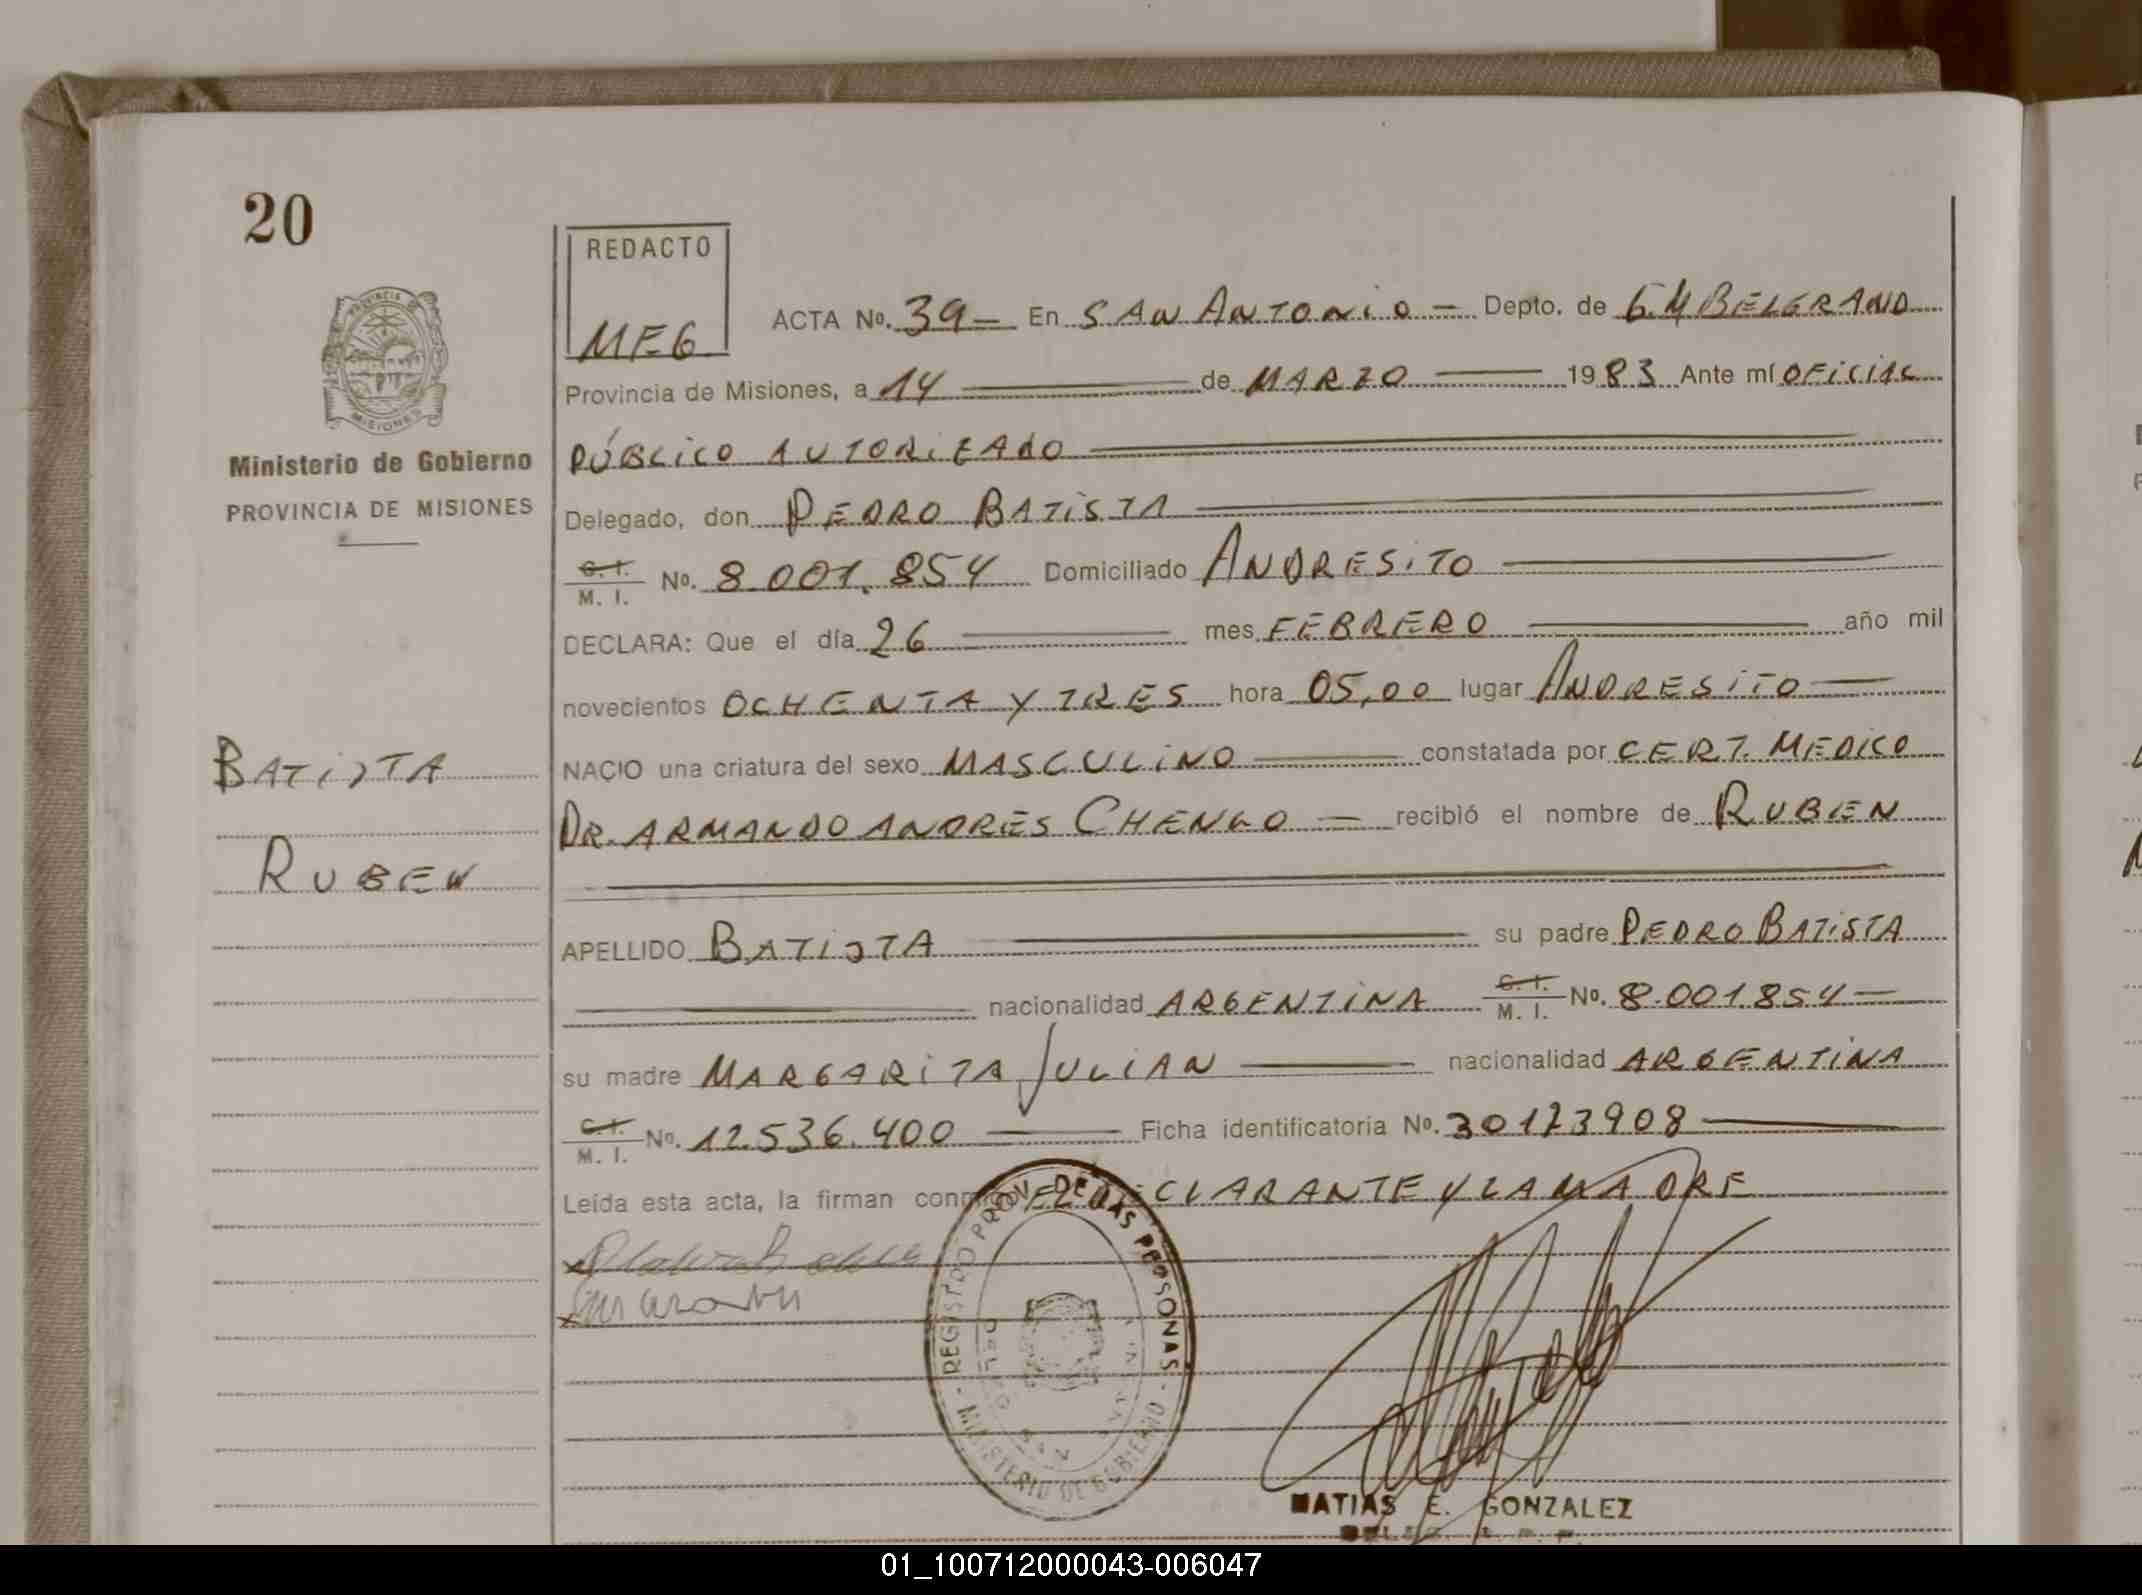 20
REDACTO
MEG
ACTA No. 39 — En SAN ANTONIO — Depto. de G.M BELGRANO
Provincia de Misiones, a 14 — de MARZO — 1983 Ante mí OFICIAL
PÚBLICO AUTORIZADO
Delegado, don PEDRO BATISTA
C. I. M. I. No. 8.001.854 Domiciliado ANDRESITO
DECLARA: Que el día 26 — mes FEBRERO — año mil
novecientos OCHENTA Y TRES hora 05,00 lugar ANDRESITO —
NACIO una criatura del sexo MASCULINO — constatada por CERT. MEDICO
DR. ARMANDO ANDRES CHENGO — recibió el nombre de RUBEN
APELLIDO BATISTA — su padre PEDRO BATISTA
— nacionalidad ARGENTINA C. I. M. I. No. 8.001854 —
su madre MARGARITA JULIAN — nacionalidad ARGENTINA
C. I. M. I. No. 12.536.400 — Ficha identificatoria No. 30173908 —
Leída esta acta, la firman conmigo EL DECLARANTE Y LA MADRE
PROVINCIA DE
MISIONES
Ministerio de Gobierno
PROVINCIA DE MISIONES
BATISTA
RUBEN
REGISTRO PROV. DE LAS PERSONAS
MINISTERIO DE GOBIERNO
MATIAS E. GONZALEZ
01_100712000043-006047